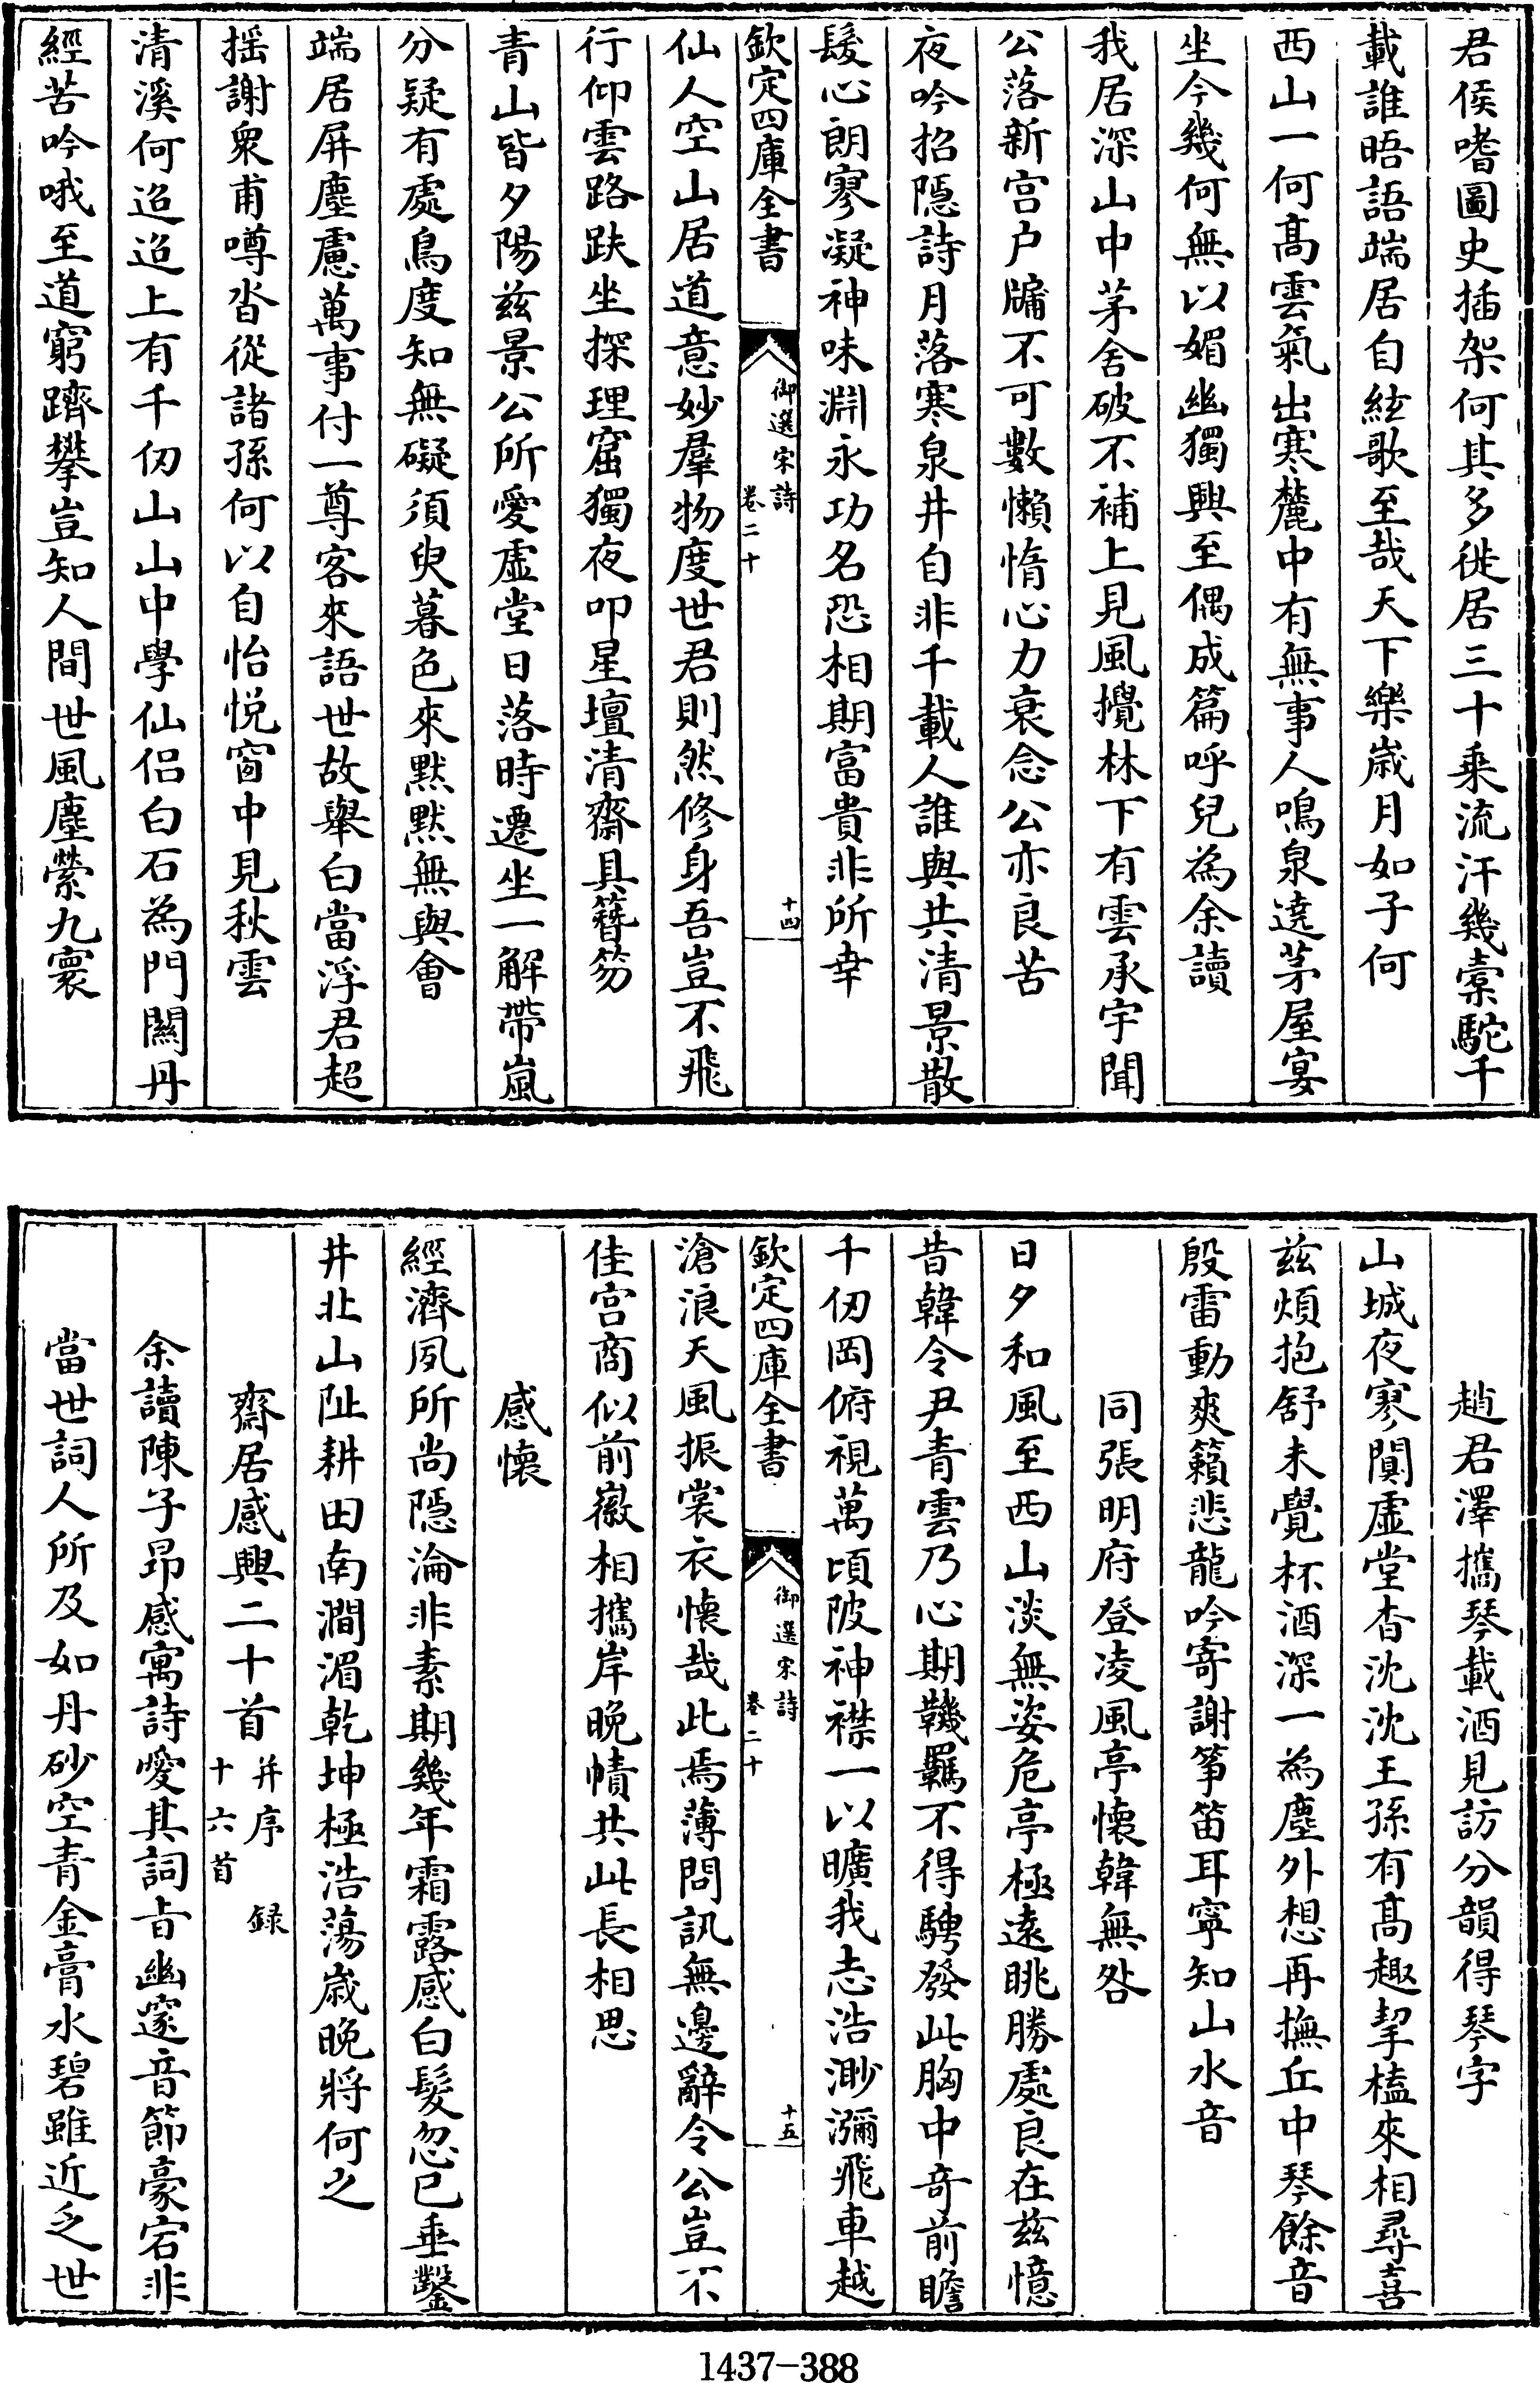 君侯嗜圖史插架何其多徙居三十乘流汗幾槖駝千
載誰晤語端居自絃歌至哉天下樂歲月如子何
西山一何髙雲氣出寒麓中有無事人鳴泉遶茅屋宴
坐今幾何無以媚幽獨興至偶成篇呼兒為余讀
我居深山中茅舍破不補上見風攪林下有雲承宇聞
公落新宫户牖不可數懶惰心力衰念公亦良苦
夜吟招隠詩月落寒泉井自非千載人誰與共清景散
髮心朗寥凝神味淵永功名恐相期富貴非所幸
欽定四庫全書
御選宋詩
卷二十
十四
仙人空山居道意妙羣物度世君則然修身吾豈不飛
行仰雲路趺坐探理窟獨夜叩星壇清齋具簪笏
青山皆夕陽兹景公所愛虚堂日落時遷坐一解帶嵐
分疑有處鳥度知無礙須臾暮色來默默無與會
端居屏塵慮萬事付一尊客來語世故舉白當浮君超
揺謝衆甫噂沓從諸孫何以自怡悦窗中見秋雲
清溪何迢迢上有千仞山山中學仙侣白石為門關丹
經苦吟哦至道窮躋攀豈知人間世風塵縈九寰
趙君澤攜琴載酒見訪分韻得琴字
山城夜寥闃虚堂杳沈沈王孫有髙趣挈榼來相尋喜
兹煩抱舒未覺杯酒深一為塵外想再撫丘中琴餘音
殷雷動爽籟悲龍吟寄謝箏笛耳寧知山水音
同張明府登凌風亭懷韓無咎
日夕和風至西山淡無姿危亭極逺眺勝處良在兹憶
昔韓令尹青雲乃心期鞿羈不得騁發此胸中竒前瞻
千仞岡俯視萬頃陂神襟一以曠我志浩渺瀰飛車越
欽定四庫全書
御選宋詩
卷二十
十五
滄浪天風振裳衣懷哉此焉薄問訊無邊辭令公豈不
佳宫商似前徽相攜岸晚幘共此長相思
感懷
經濟夙所尚隠淪非素期幾年霜露感白髮忽已垂鑿
井北山阯耕田南澗湄乾坤極浩蕩歲晚將何之
齋居感興二十首 并序 録
十六首
余讀陳子昂感寓詩愛其詞旨幽邃音節豪宕非
當世詞人所及如丹砂空青金膏水碧雖近乏世
1437-388